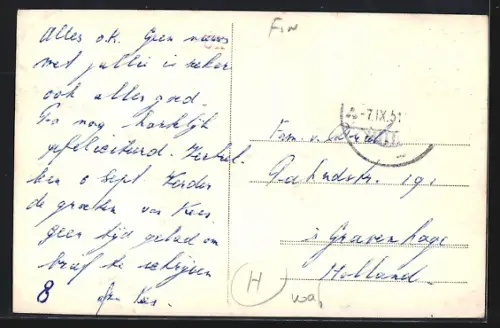 Alles o.k. Geen nieuws
met jullie is zeker
ook alles goed.
Pa nog hartelijk
gefeliciteerd.
6 Sept. Verder
de groeten van Kees.
geen tijd gehad om
brief te schrijven
8
FIN
-7.IX.51
Fam. v.
191
's Gravenhage
Holland.
H